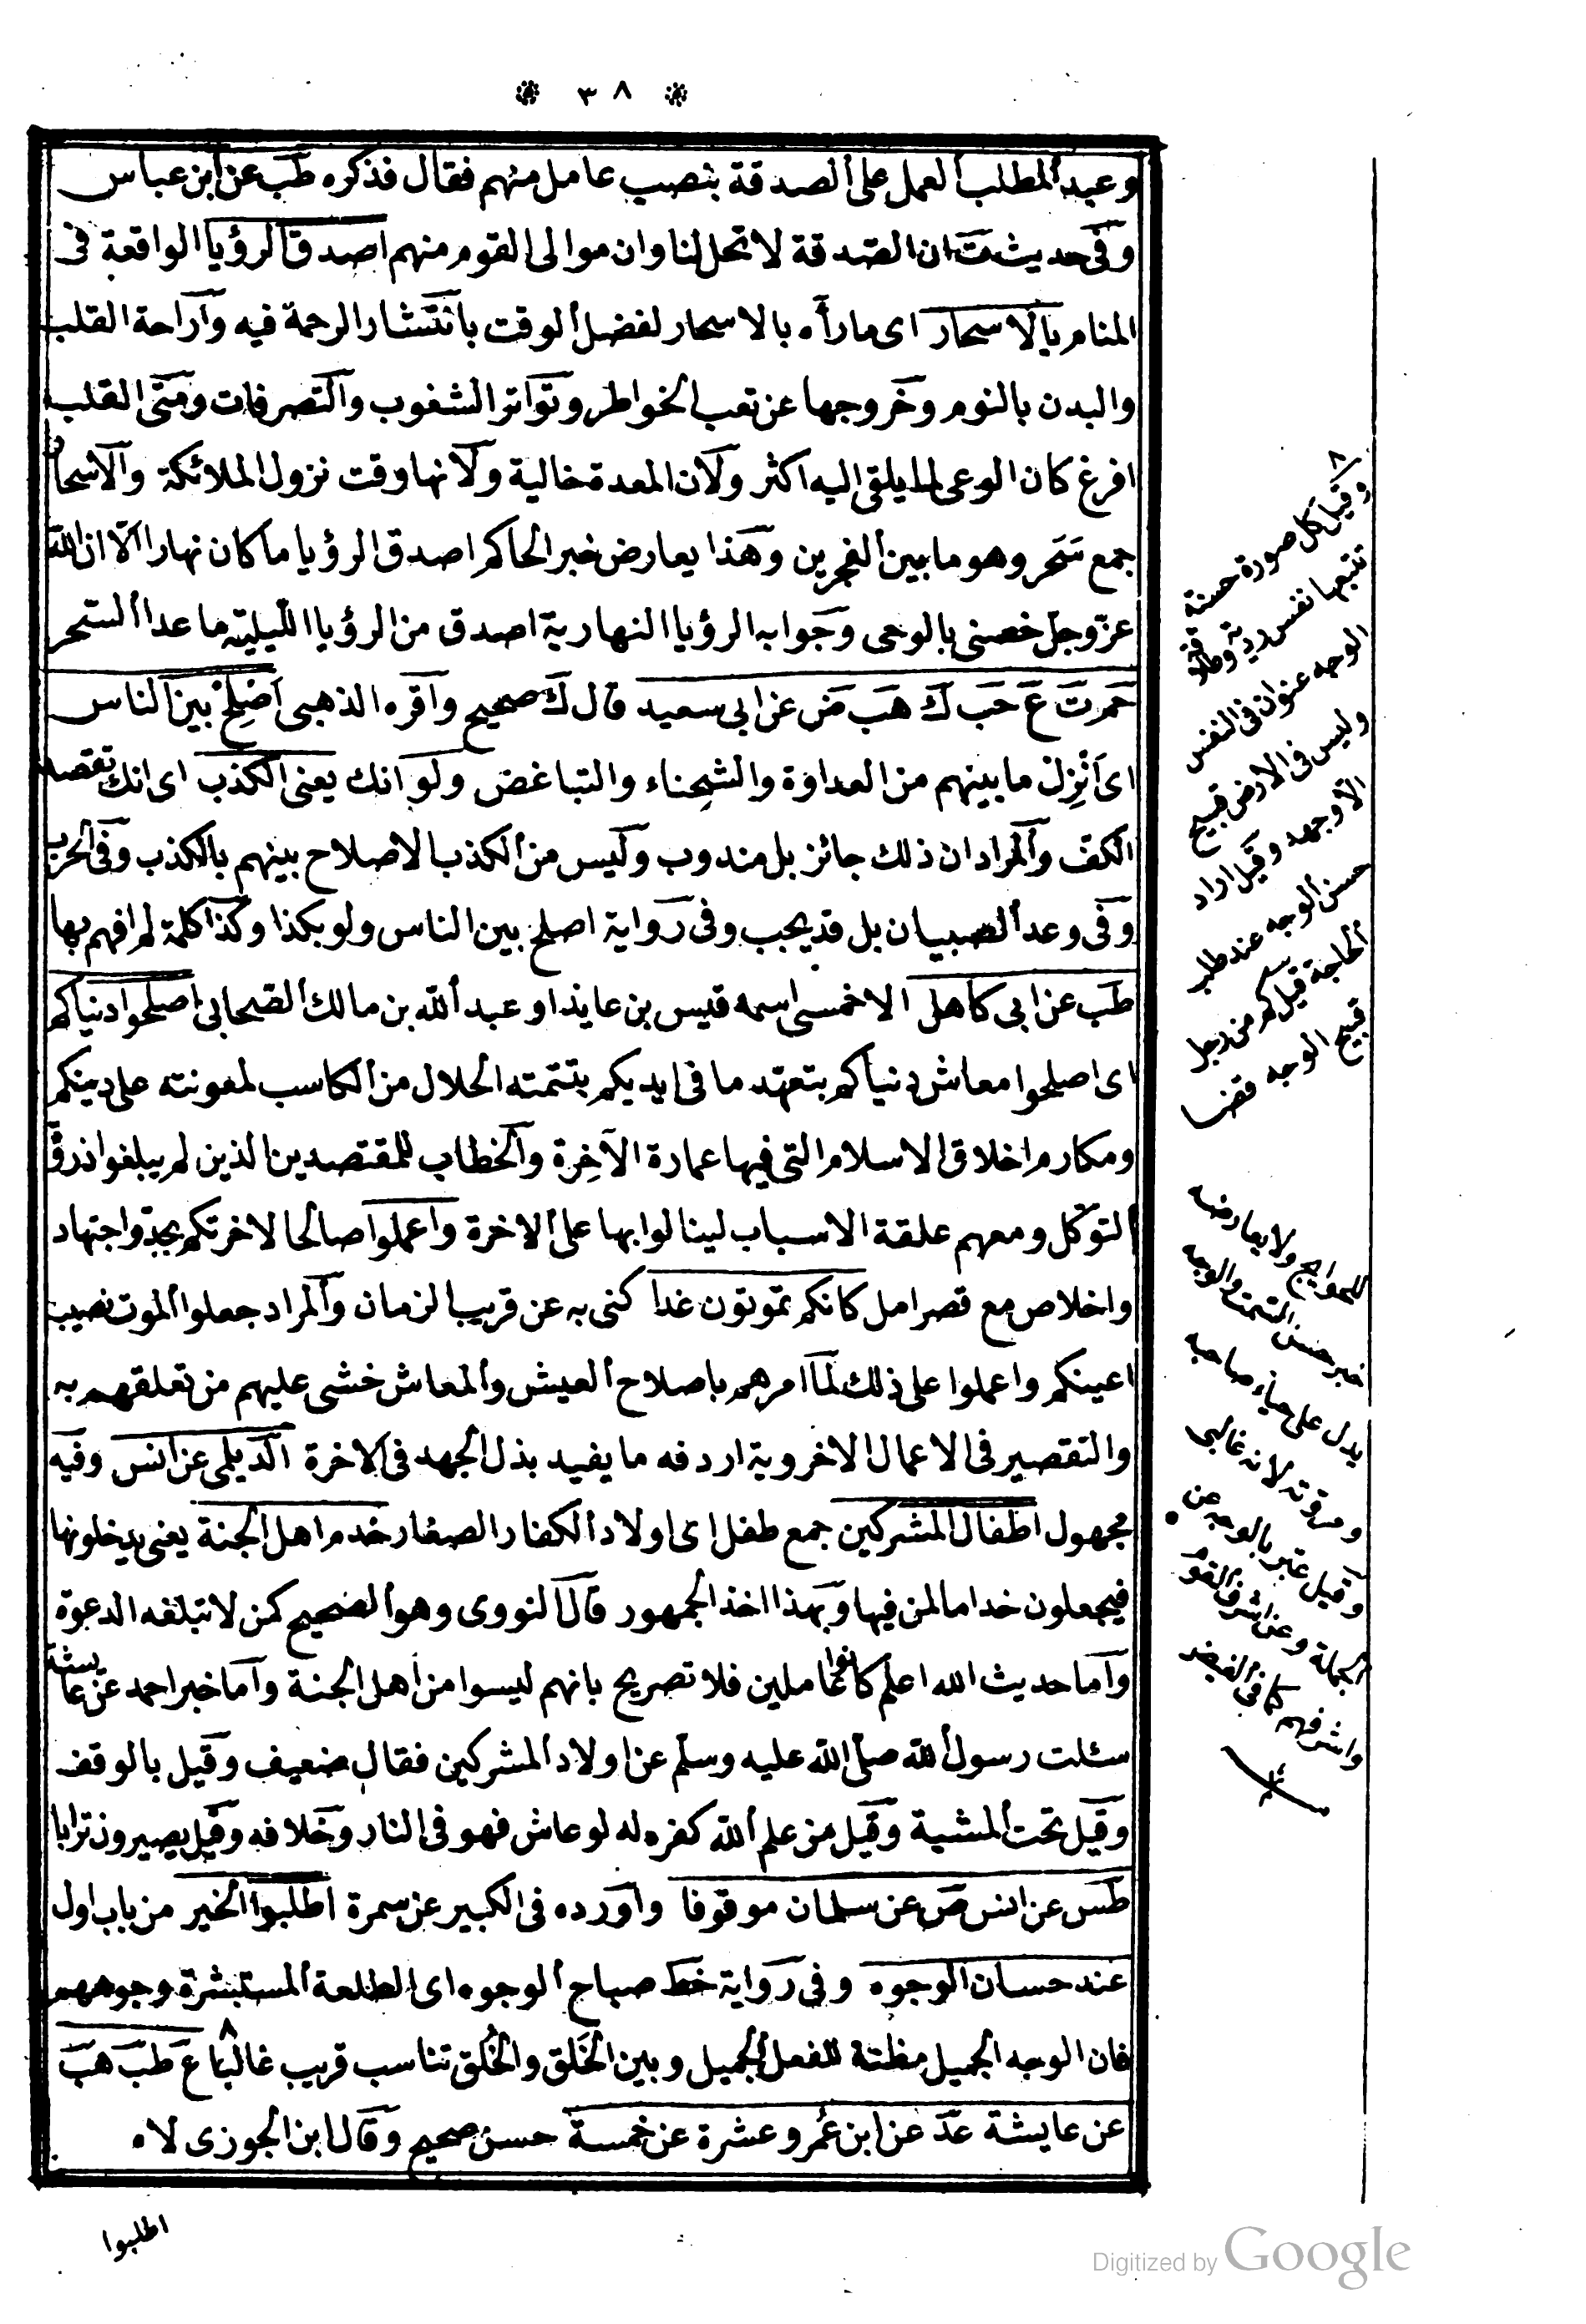 * ٣٨ *
وعبد المطلب العمل على الصدقة بنصيب عامل منهم فقال فذكره طب عن ابن عباس
وفى حديث ت ان الصدقة لا تحل لنا وان موالى القوم منهم اصدق الرؤيا الواقعة فى
المنام بالاسحار اى ما رأه بالاسحار لفضل الوقت بانتشار الرحمة فيه واراحة القلب
والبدن بالنوم وخروجها عن تعب الخواطر وتواتر الشغوب والتصرفات ومتى القلب
افرغ كان الوعى لما يلقى اليه اكثر ولان المعدة خالية ولانها وقت نزول الملائكة والاسحار
جمع سَحَر وهو ما بين الفجرين وهذا يعارض خبر الحاكم اصدق الرؤيا ما كان نهارا الّا ان الله
عزّ وجلّ خصنى بالوحى وجوابه الرؤيا النهارية اصدق من الرؤيا اللّيليّة ما عدا السّحر
حم ت ع حب ك هب ض عن ابى سعيد قال ك صحيح واقره الذهبى اَصْلِحْ بين الناس
اى اَزِلْ ما بينهم من العداوة والشحناء والتباغض ولو انك يعنى الكذب اى انك تقصد
الكف والمراد ان ذلك جائز بل مندوب وليس من الكذب الاصلاح بينهم بالكذب وفى الحرب
وفى وعد الصبيان بل قد يجب وفى رواية اصلح بين الناس ولو بكذا وكذا كلمة لم افهم بها
طب عن ابى كاهل الاخمسى اسمه قيس بن عايذ او عبد الله بن مالك الصّحابى اصلحوا دنياكم
اى اصلحوا معاش دنياكم بتعهّد ما فى ايديكم بتتمته الحلال من المكاسب لمعونته على دينكم
ومكارم اخلاق الاسلام التى فيها عمارة الآخِرة والخطاب للمقتصدين الذين لم يبلغوا ذروة
التوكّل ومعهم علقة الاسباب لينالوا بها على الاخرة واعملوا صالحا لاخرتكم بجدّ واجتهاد
واخلاص مع قصر امل كانكم تموتون غدا كنى به عن قريب الزمان والمراد جعلوا الموت نصيب
اعينكم واعملوا على ذلك لمّا امرهم باصلاح العيش والمعاش خشى عليهم من تعلقهم به
والتقصير فى الاعمال الاخروية اردفه ما يفيد بذل الجهد فى الاخرة الديلمى عن انس وفيه
مجهول اطفال المشركين جمع طفل اى اولاد الكفار الصغار خدم اهل الجنة يعنى يدخلونها
فيجعلون خداما لمن فيها وبهذا اخذ الجمهور قال النووى وهو الصحيح كمن لا تبلغه الدعوة
واما حديث الله اعلم كانوا عاملين فلا تصريح بانهم ليسوا من اهل الجنة واما خبر احمد عن عايشة
سئلت رسول الله صلّى الله عليه وسلّم عن اولاد المشركين فقال ضعيف وقيل بالوقف
وقيل تحت المشية وقيل من علم الله كفره له لو عاش فهو فى النار وخلافه وقيل يصيرون ترابا
طس عن انس ص عن سلمان موقوفا واورده فى الكبير عن سمرة اطلبوا الخير من باب اول
عند حسان الوجوه وفى رواية خط صباح الوجوه اى الطلعة المستبشرة وجوههم
فان الوجه الجميل مظنة للفعل الجميل وبين الخَلق والخُلق تناسب قريب غالبا ٨ ع طب هب
عن عايشة عد عن ابن عُمر وعشرة عن خمسة حسن صحيح وقال ابن الجوزى لا ه
اطلبوا
٨ وقيل كل صورة حسنة
تتبعها نفس ردية وطلاقة
الوجه عنوان فى النفس
وليس فى الارض قبيح
الا وجهه وقيل اراد
حسن الوجه عند طلب
الحاجة قيل كم من رجل
قبيح الوجه قضا
للحوايج ولا يعارضه
خبر حسن السّمت والوجه
يدل على حياء صاحبه
ومروته لانه غالبى
وقيل عبّر بالوجه عن
الجملة وعن اشرف القوم
واشرفهم كما فى الفيض
Digitized by Google